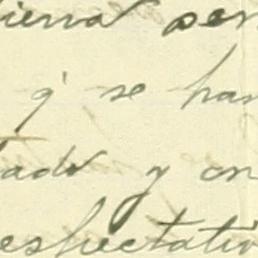 ierra ser
q' se han
ado y en
espectativ